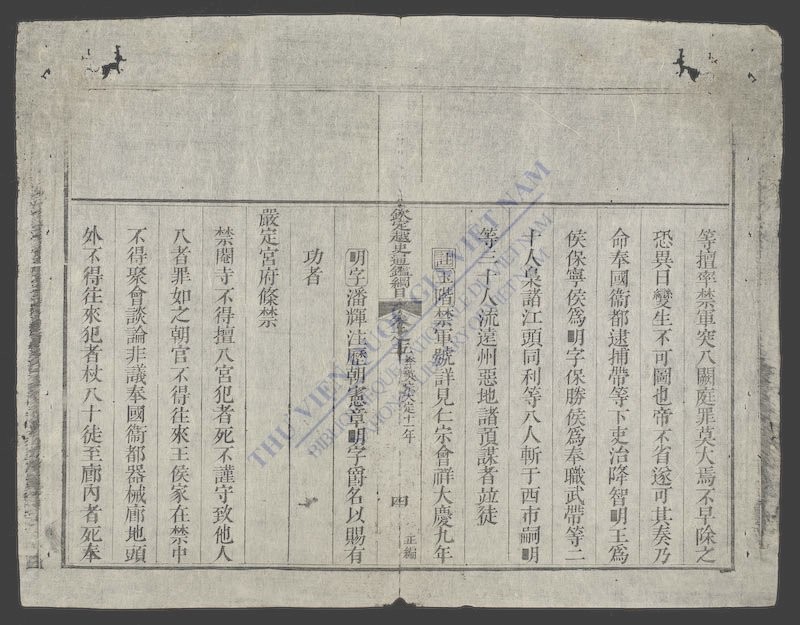 等擅率禁軍突入闕庭罪莫大焉不早除之
恐異日變生不可圖也帝不省遂可其奏乃
命奉國衞都逮捕帶等下吏治降智明王爲
侯保寧侯爲明字保勝侯爲奉職武帶等二
十人梟諸江頭同利等八人斬于西市嗣明
等三十人流遠州惡地諸預謀者並徒
註玉階禁軍號詳見仁宗會祥大慶九年
欽定越史通鑑綱目 卷之五 李英宗大定十一年 四 正編
明字潘輝注歷朝憲章明字爵名以賜有
功者
嚴定宮府條禁
禁閹寺不得擅入宮犯者死不謹守致他人
入者罪如之朝官不得往來王侯家在禁中
不得聚會談論非議奉國衞都器械廊地頭
外不得往來犯者杖八十徒至廊內者死奉
THƯ VIỆN QUỐC GIA VIỆT NAM
BIBLIOTHÈQUE NATIONALE DU VIETNAM
NATIONAL LIBRARY OF VIETNAM